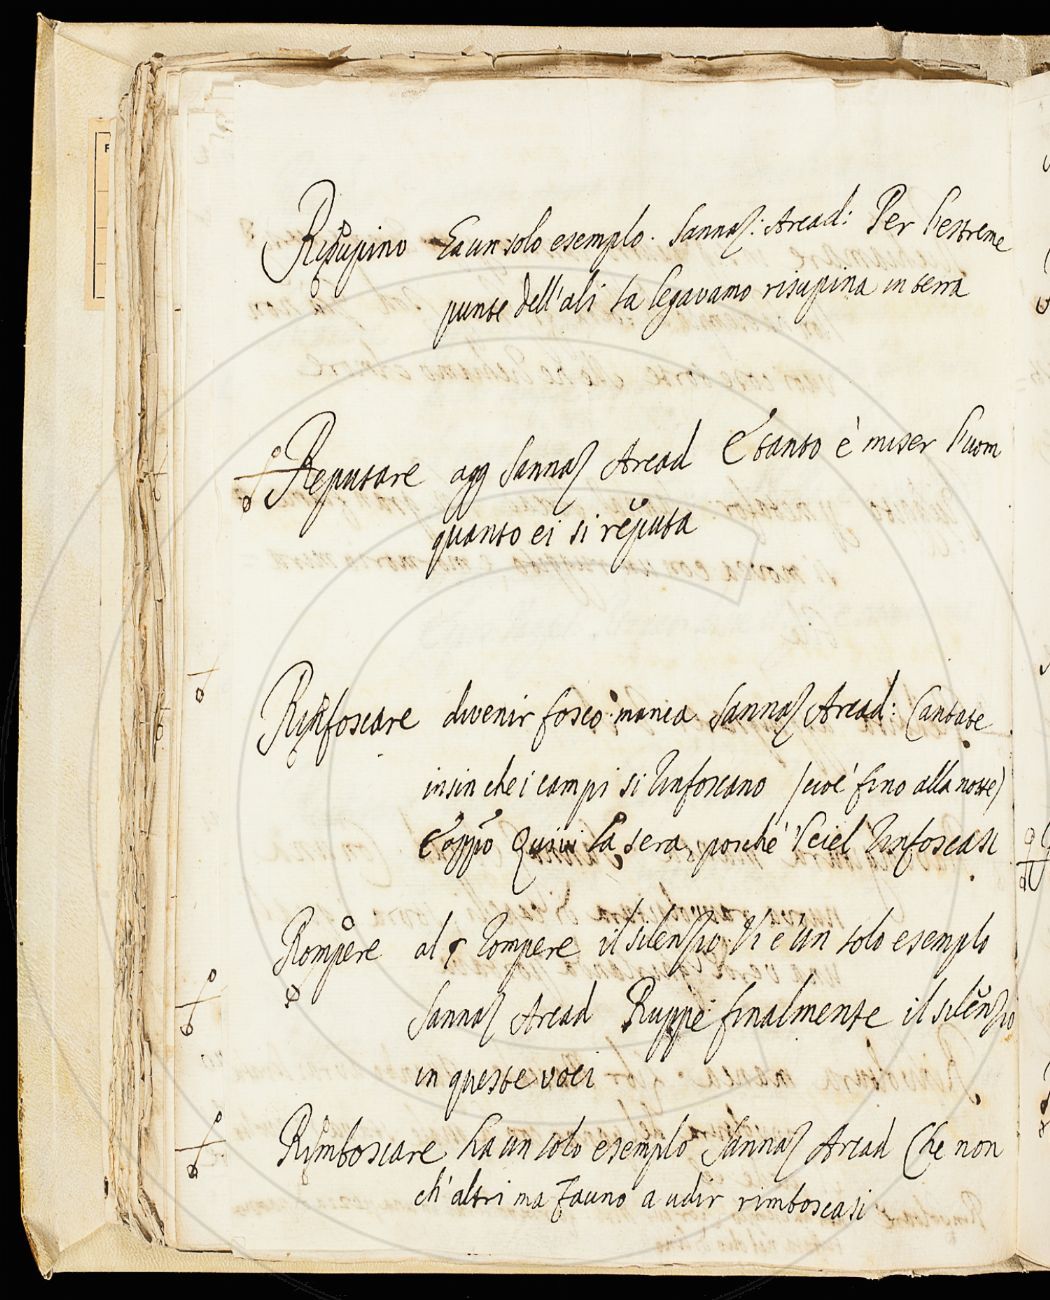 Risupino ha un solo esempio. Sannaz: Arcad: Per l'estreme
punte dell'ali la legavamo risupina in terra
Reputare agg Sannaz Arcad E tanto è miser l'uom
quanto ei si reputa
Rinfoscare divenir fosco manca Sannaz Arcad: Cantate
insin che i campi si rinfoscano (cioè fino alla notte)
E appo Quivi la sera, poichè 'l ciel rinfoscasi
Rompere al § rompere il silenzio Vi è un solo esempio
Sannaz Arcad Ruppe finalmente il silenzio
in queste voci
Rimboscare ha un solo esempio Sannaz Arcad Che non
ch'altri ma Fauno a udir rimboscasi